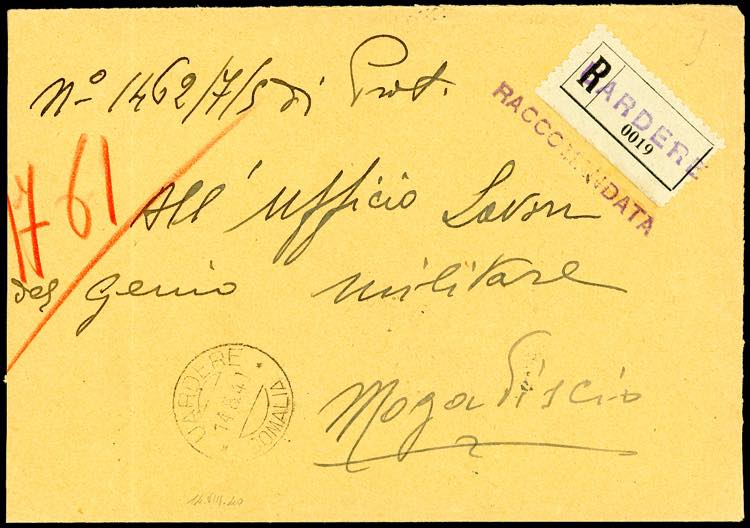 nº 1462/7/5 di Prot.
R UARDERE
0019
RACCOMANDATA
1761
All' Ufficio Lavori
del genio militare
Mogadiscio
UARDERE
SOMALIA
14.VIII.40